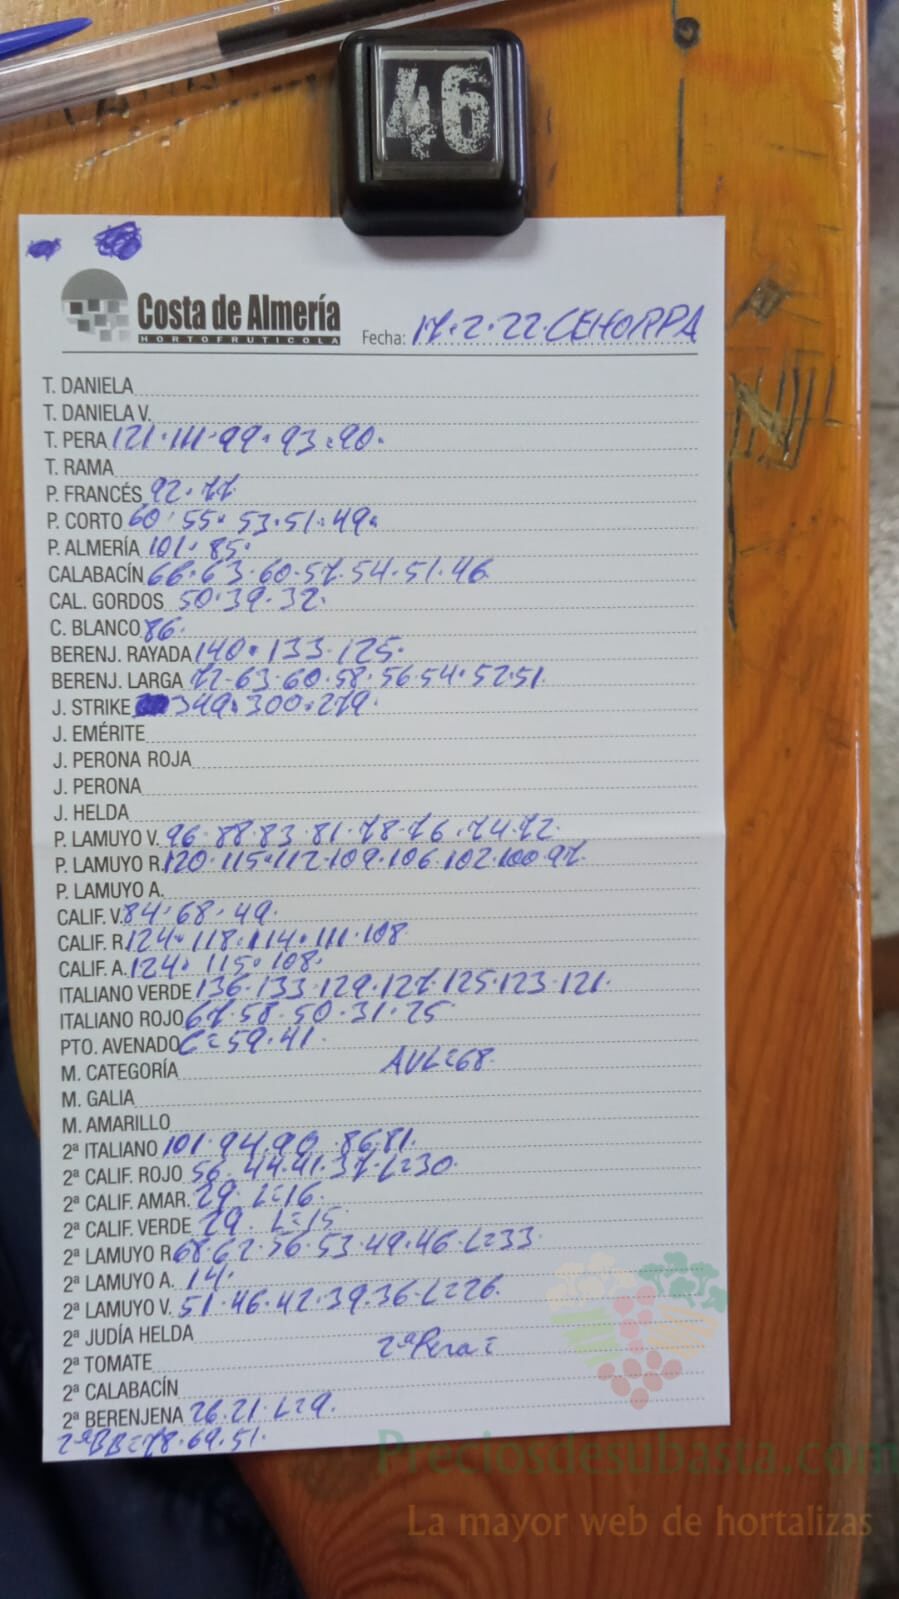 46
Costa de Almería
HORTOFRUTICOLA
Fecha: 17.2.22.CEHORPA
T. DANIELA
T. DANIELA V.
T. PERA 121.111.99.93.90.
T. RAMA
P. FRANCÉS 92.77
P. CORTO 60.55.53.51.49.
P. ALMERÍA 101.85.
CALABACÍN 66.63.60.57.54.51.46
CAL. GORDOS 50.39.32.
C. BLANCO 86.
BERENJ. RAYADA 140.133.125.
BERENJ. LARGA 72.63.60.58.56.54.52.51.
J. STRIKE 349.300.279.
J. EMÉRITE
J. PERONA ROJA
J. PERONA
J. HELDA
P. LAMUYO V. 96.88.83.81.78.76.74.72.
P. LAMUYO R. 120.115.112.109.106.102.100.97.
P. LAMUYO A.
CALIF. V. 84.68.49.
CALIF. R. 124.118.114.111.108
CALIF. A. 124.115.108.
ITALIANO VERDE 136.133.129.127.125.123.121.
ITALIANO ROJO 67.58.50.31.25
PTO. AVENADO C=59.41.
M. CATEGORÍA AVL=68.
M. GALIA
M. AMARILLO
2ª ITALIANO 101.94.90.86.81.
2ª CALIF. ROJO 56.44.41.37.L=30.
2ª CALIF. AMAR. 29. L=16.
2ª CALIF. VERDE 29. L=15
2ª LAMUYO R 68.62.56.53.49.46.L=33.
2ª LAMUYO A. 14.
2ª LAMUYO V. 51.46.42.39.36.L=26.
2ª JUDÍA HELDA
2ª TOMATE 2ªPera=
2ª CALABACÍN
2ª BERENJENA 26.21.L=9.
2ªBB=78.69.51.
Preciosdesubasta.com
La mayor web de hortalizas